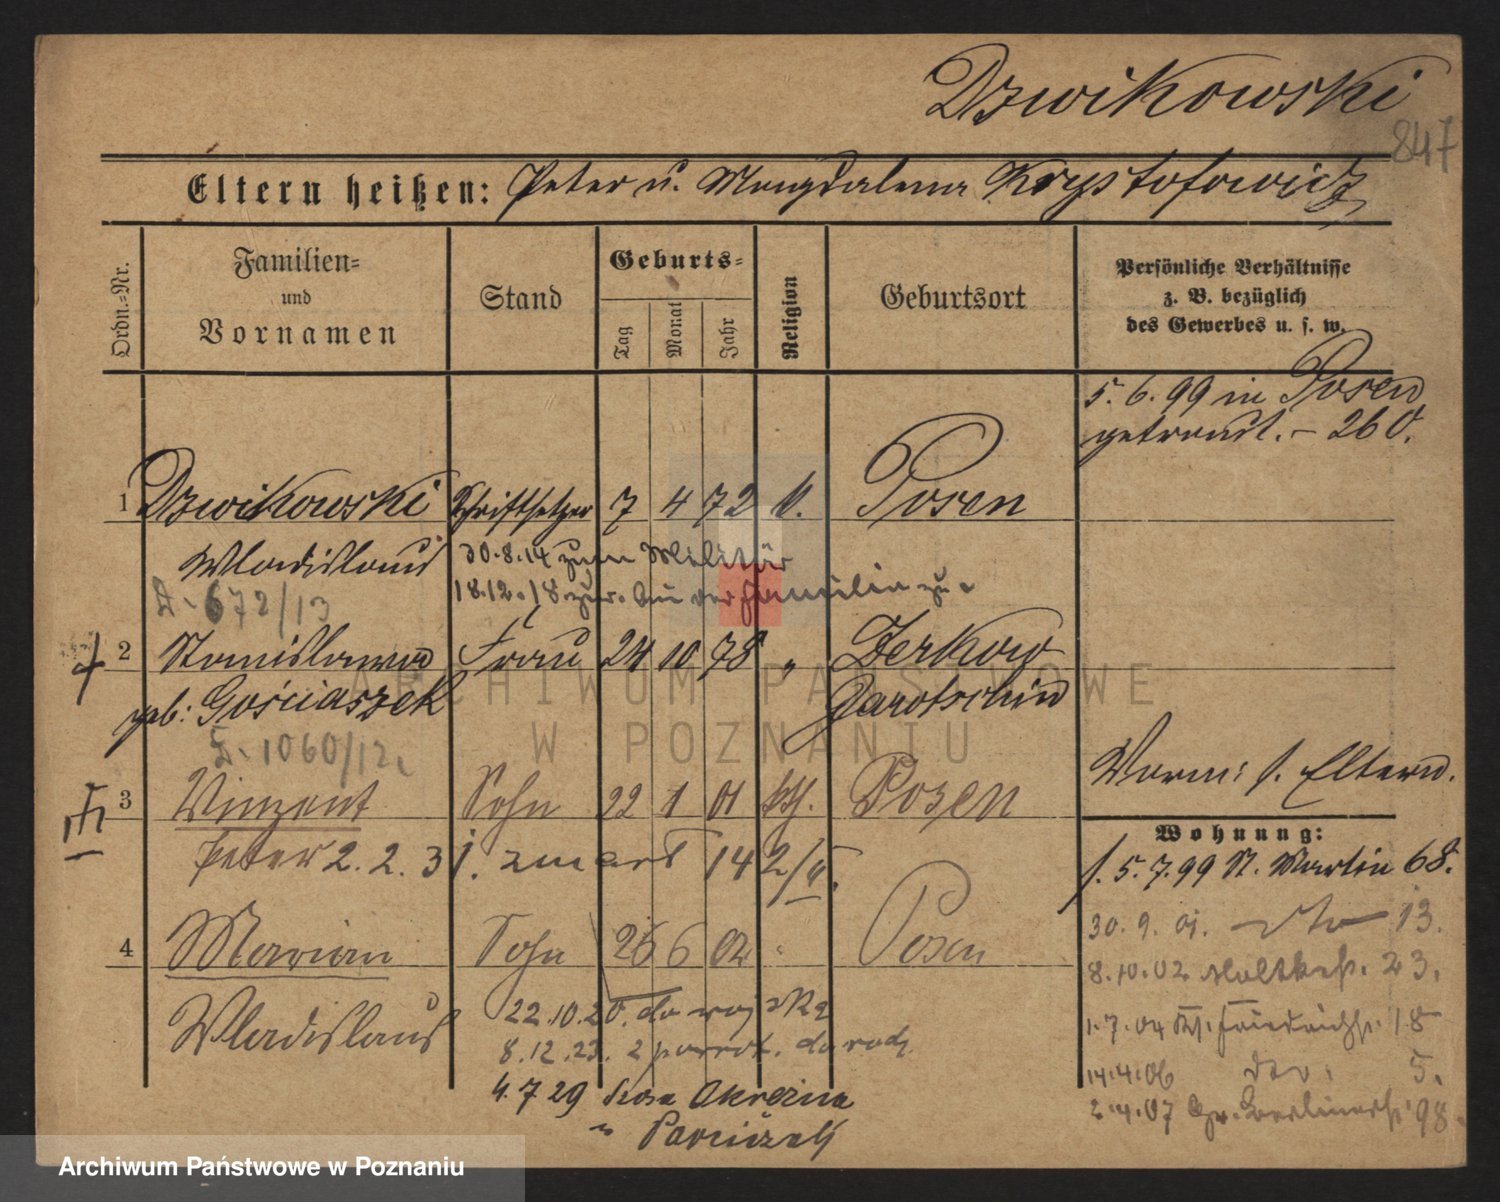 Dzwikowski
847
Eltern heißen: Peter u. Magdalena Krystofowicz
Ordn.-Nr.
Familien-
und
Vornamen
Stand
Geburts-
Tag
Monat
Jahr
Religion
Geburtsort
Persönliche Verhältnisse
z. B. bezüglich
des Gewerbes u. s. w.
5. 6. 99 in Posen
getraut. – 260.
1 Dzwikowski Schriftsetzer 7 4 72 k. Posen
Wladislaus 30.8.14 zum Militär
18.12.18 zur. der Familie zu
672/13
2 Stanislawa Frau 24 10 78 " Zerkow
geb: Gościaszek Jarotschin
1060/12.
Verm: s. Eltern.
3 Vinzent Sohn 22 1 01 kth. Posen
Wohnung:
Peter 2. 2. 31. zmarł 14 2/II.
5.7.99 St. Martin 68.
30. 9. 01. dto 13.
4 Marian Sohn 26 6 02 Posen
8.10.02 Moltkestr. 23.
Wladislaus 22.10.20. do wojska
1.7.04 Friedrichstr. 18
8.12.23. z powrot. do rodz.
14.4.06 5.
4.7 29 Kosa Okrężna
2.4.07 Gr. Berlinerstr. 98.
ARCHIWUM PAŃSTWOWE
W POZNANIU
Archiwum Państwowe w Poznaniu